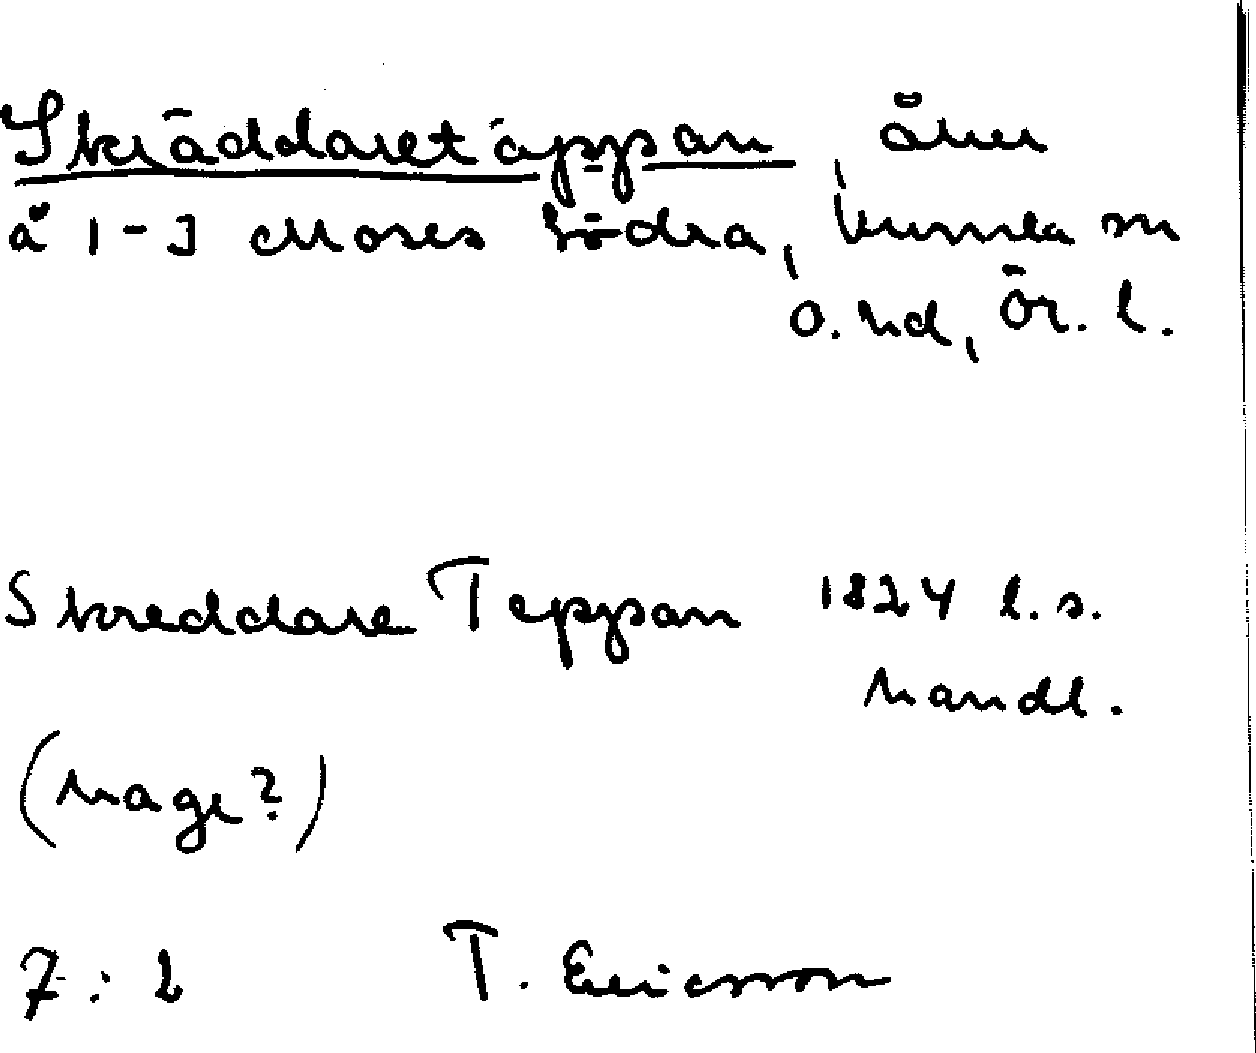 Skräddaretäppan, åker
å 1-3 Moses Södra, Kumla sn
ö. hd, Ör. l.
Skreddare Teppan 1824 l.s.
handl.
(hage?)
7:2 T. Ericsson